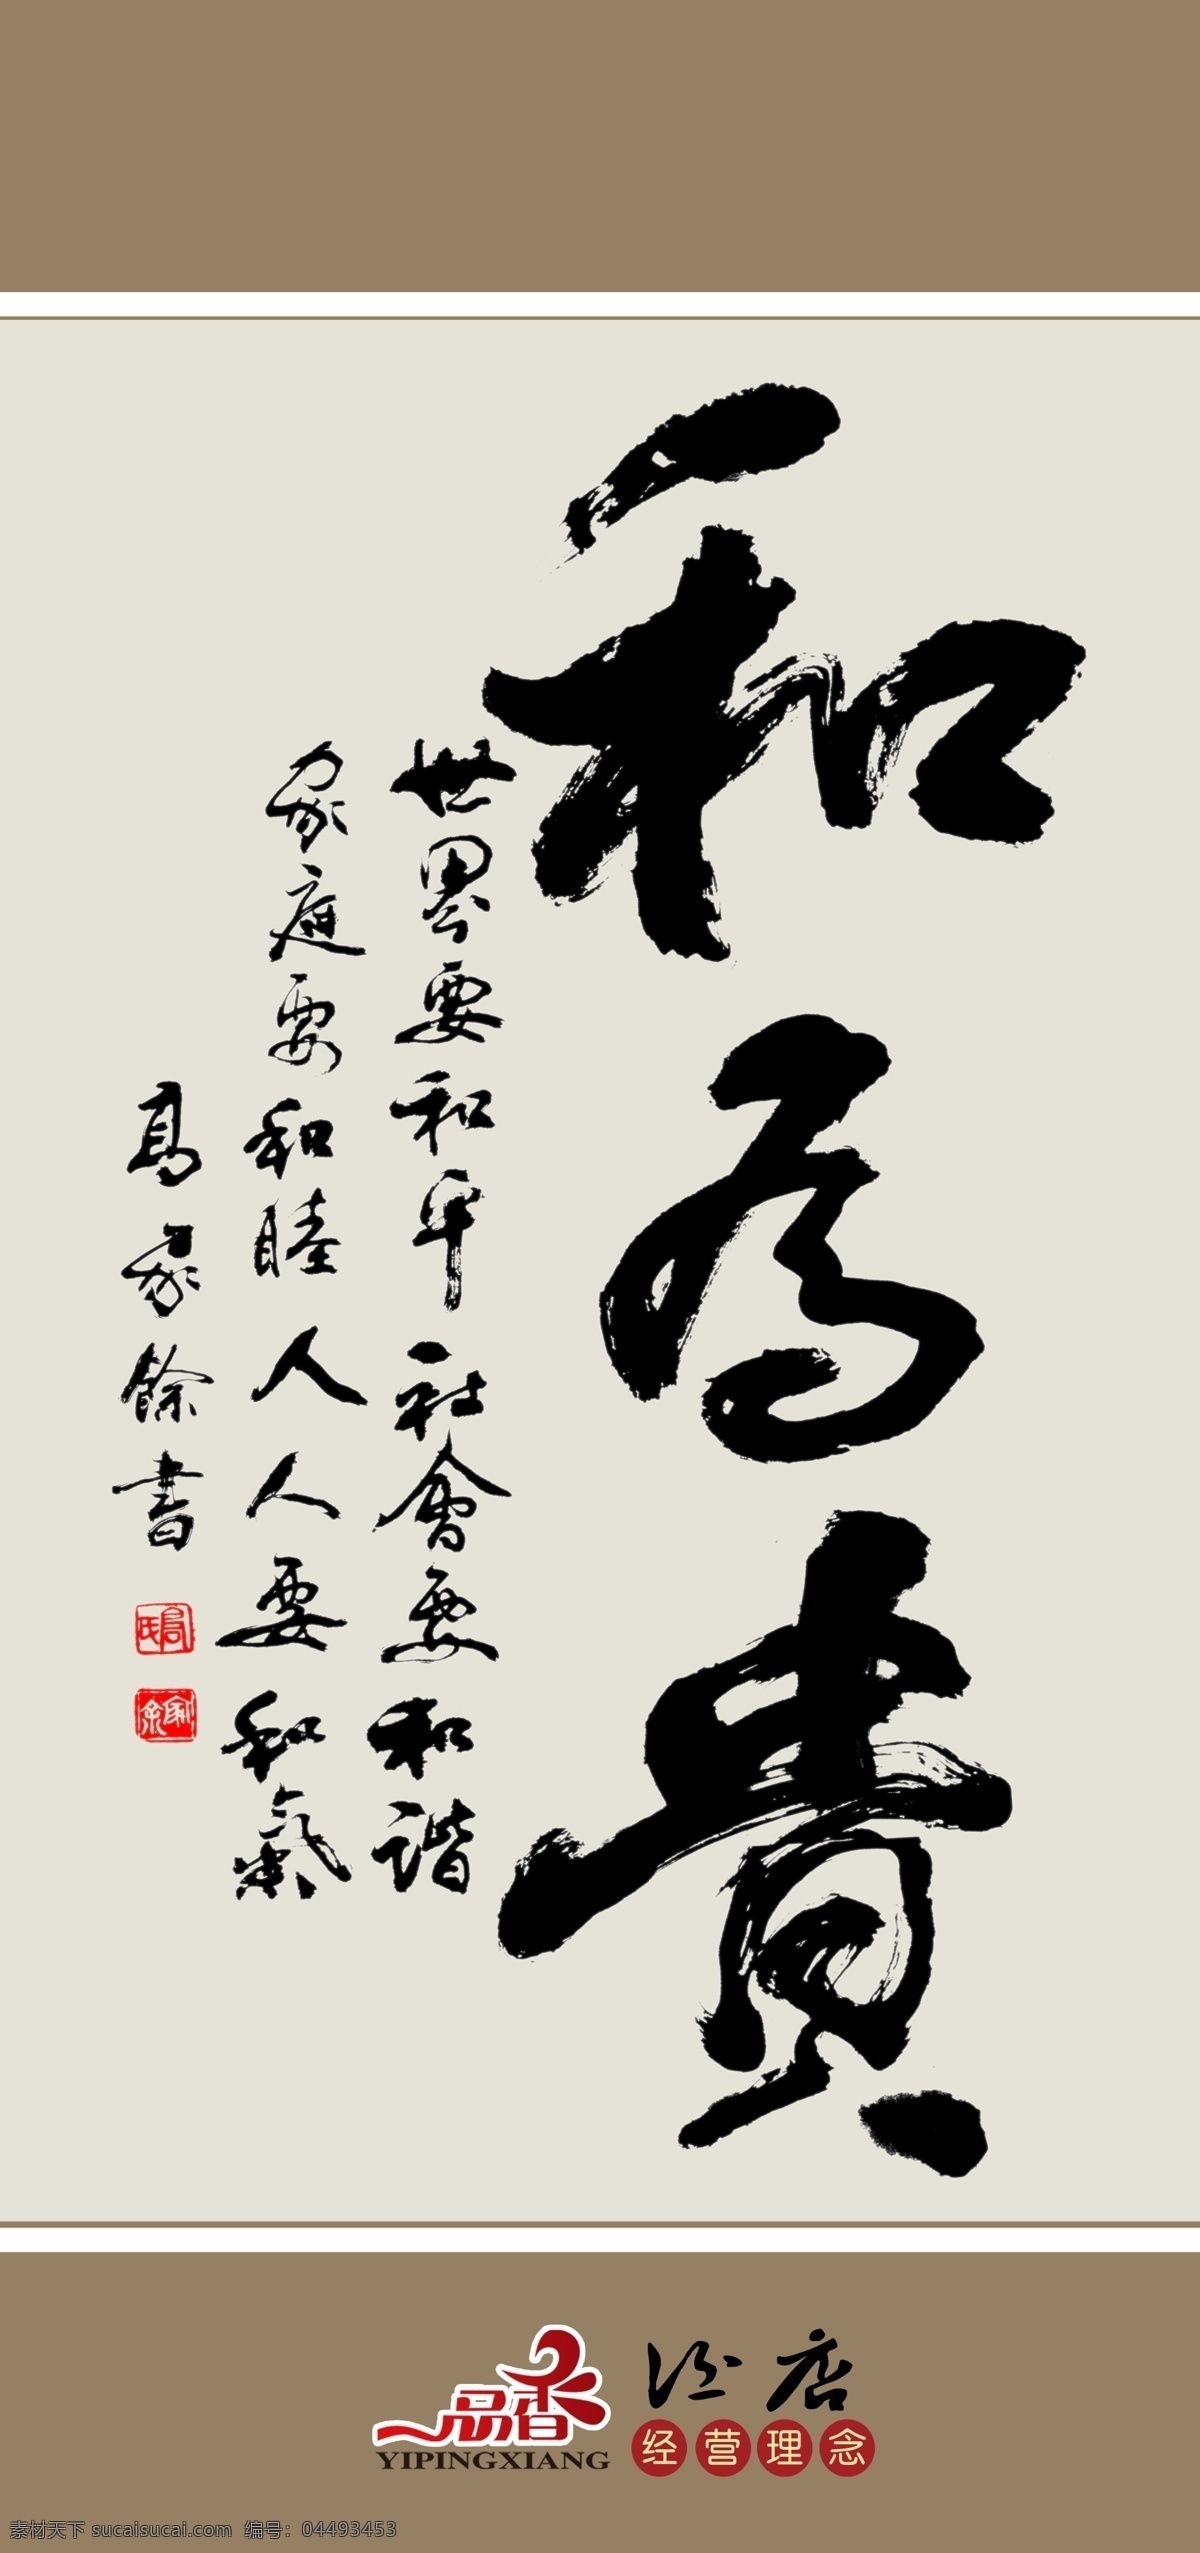 和为貴
世界要和平社會要和谐
家庭要和睦人人要和氣
高家餘書
高氏
一品香
YIPINGXIANG
店
经营理念
素材天下 sucaisucai.com 编号：04493453